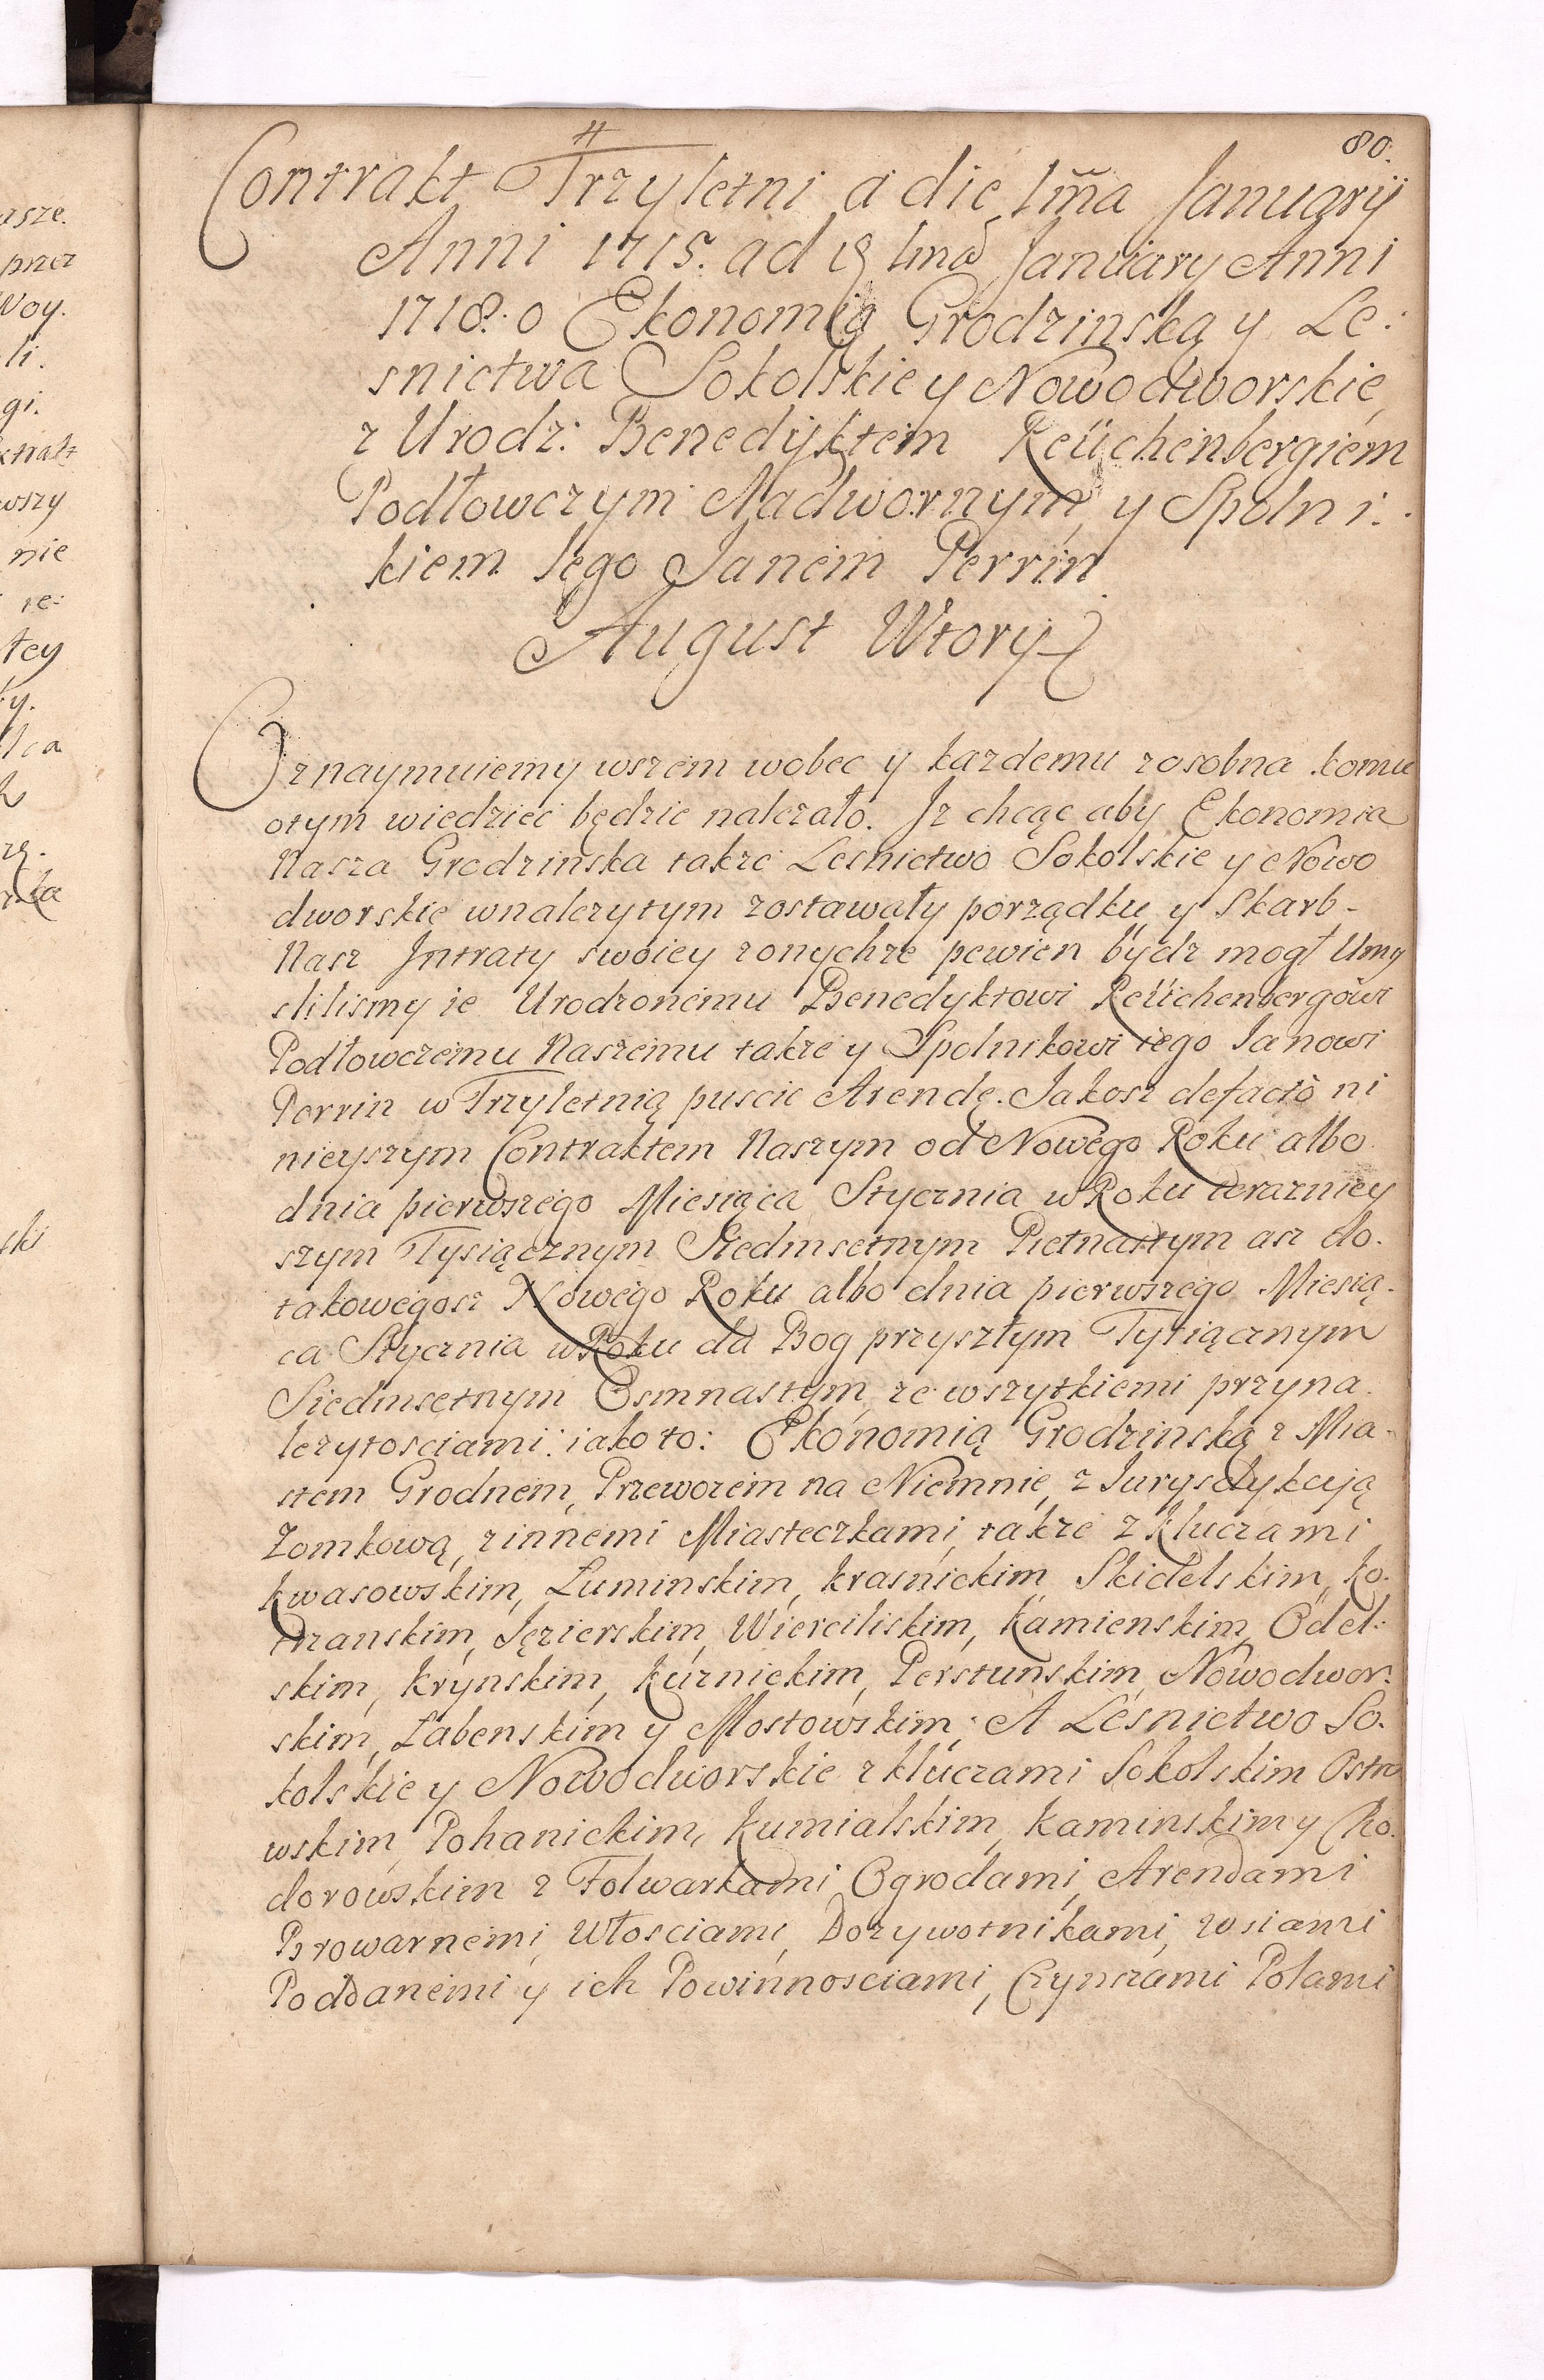 80.
Contrakt Trzyletni a die 1ma Januarij
Anni 1715. ad 1ma January Anni
1718. o Ekonomią Grodzinską y Le:
snictwa Sokolskie y Nowodworskie,
z Urodz: Benedyktem Reüchenbergiem
Podłowczym Nadwornym, y Spolni:
kiem Iego Janem Perrin
August Wtory
Oznaymuiemy wszem wobec y kazdemu zosobna komu
otym wiedziec będzie nalezało. Iz chcąc aby Ekonomia
Nasza Grodzinska takze Lesnictwo Sokolskie y Nowo
dworskie wnalezytym zostawały porządku, y Skarb-
Nasz Intraty swoiey zonychze pewien bydz mogł Umy
slilismy ie Urodzonemu Benedyktowi Reüchenbergowi
Podłowczemu Naszemu takze y Spolnikowi iego Janowi
Perrin w Trzyletnią puscic Arendę. Jakosz defacto ni
nieyszym Contraktem Naszym od Nowego Roku albo
dnia pierwszego Miesiąca Stycznia w Roku terazniey
szym Tysiącznym Siedmsetnym Pietnastym asz do.
takowegosz Nowego Roku albo dnia pierwszego Miesią-
ca Stycznia w Roku da Bog przyszłym Tysiącznym
Siedmsetnym Osmnastym, ze wszytkiemi przyna
lezytosciami: iako to: Ekonomią Grodzinską z Mia-
stem Grodnem, Przewozem na Niemnie, z Jurysdykcyą
Zomkową, zinnemi Miasteczkami, takze z Kluczami
Kwasowskim, Łuminskim, Krasnickim, Skidelskim, Ko.
trzanskim, Jęzierskim, Wierciliskim, Kamienskim, Odel:
skim, Krynskim, Kuznickim, Perstunskim, Nowodwor:
skim, Łabenskim y Mostowskim; A Lesnictwo So.
kolskie y Nowodworskie z kluczami Sokolskim Ostro
wskim, Pohanickim, Kumialskim, Kaminskim y Cho.
dorowskim z Folwarkami Ogrodami, Arendami
Browarnemi, Włosciami, Dozywotnikami, Wsiami
Poddanemi y ich Powinnosciami, Czynszami Polami